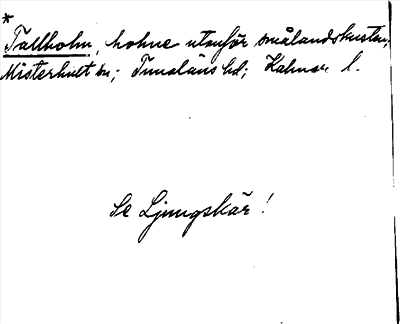 *
Tallholm, holme utanför smålandskusten,
Misterhult sn; Tunaläns hd; Kalmar l.
Se Ljungskär!